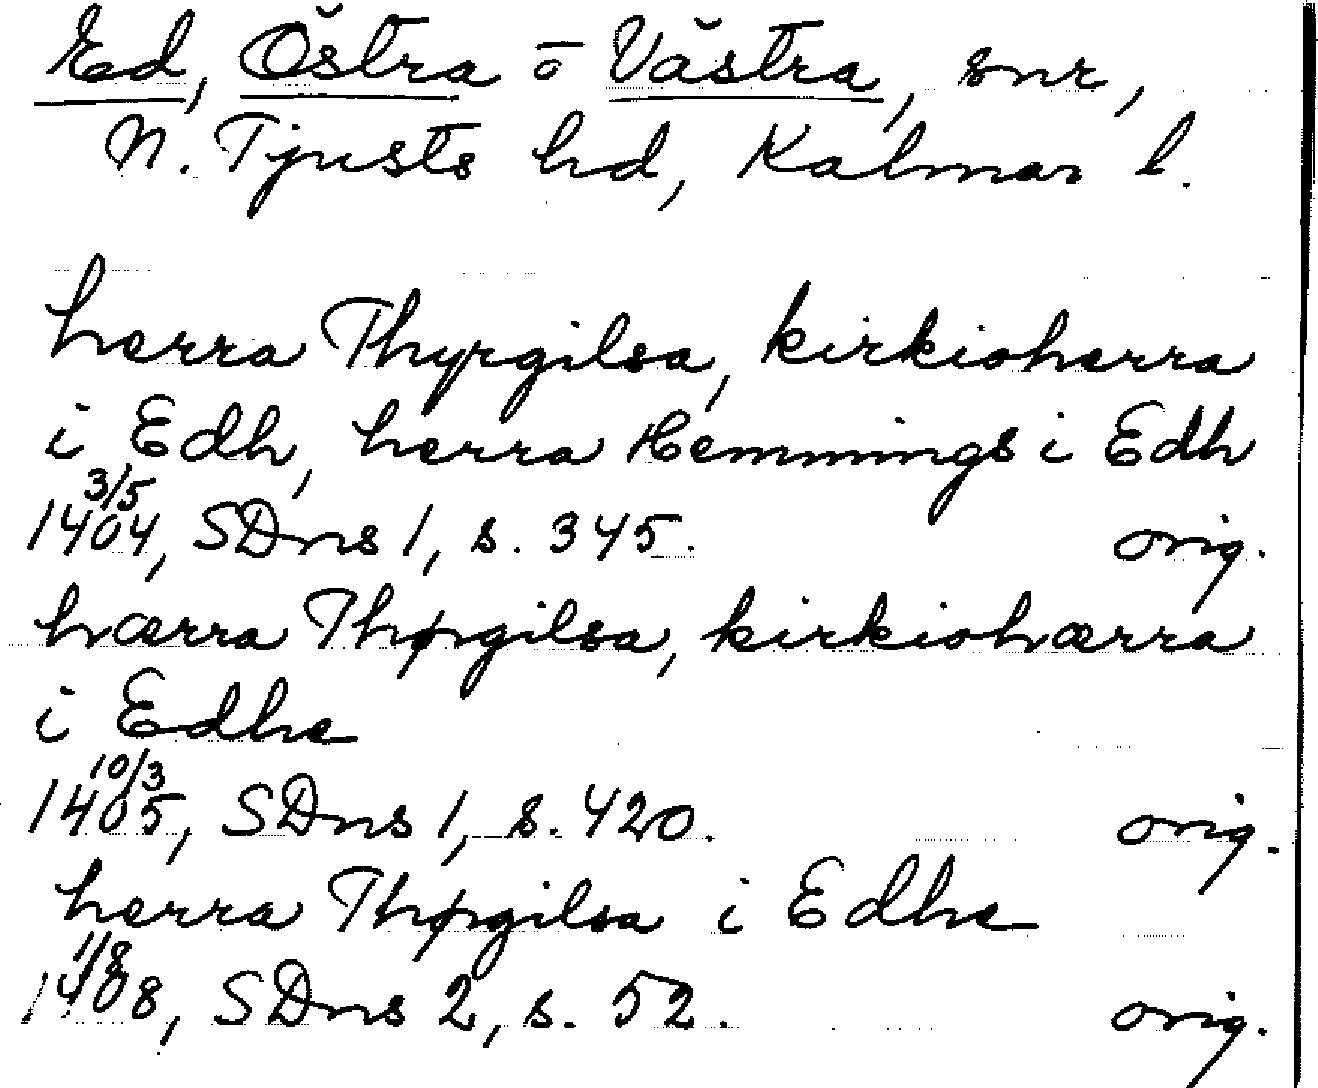 Ed, Östra o Västra, snr,
N. Tjusts hd, Kalmar l.
herra Thyrgilsa, kirkioherra
i Edh, herra Hemmings i Edh
3/5
1404, SDns 1, s. 345. orig.
hærra Thørgilsa, kirkiohærra
i Edhe
10/3
1405, SDns 1, s. 420. orig.
herra Thørgilsa i Edhe
1/8
1408, SDns 2, s. 52. orig.